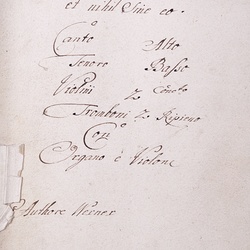 et nihil sine eo.
Canto Alto
Tenore Basso
Violini 2 Conc:to
Tromboni 2 Ripieno
Con
Organo è Violone
Authore Werner